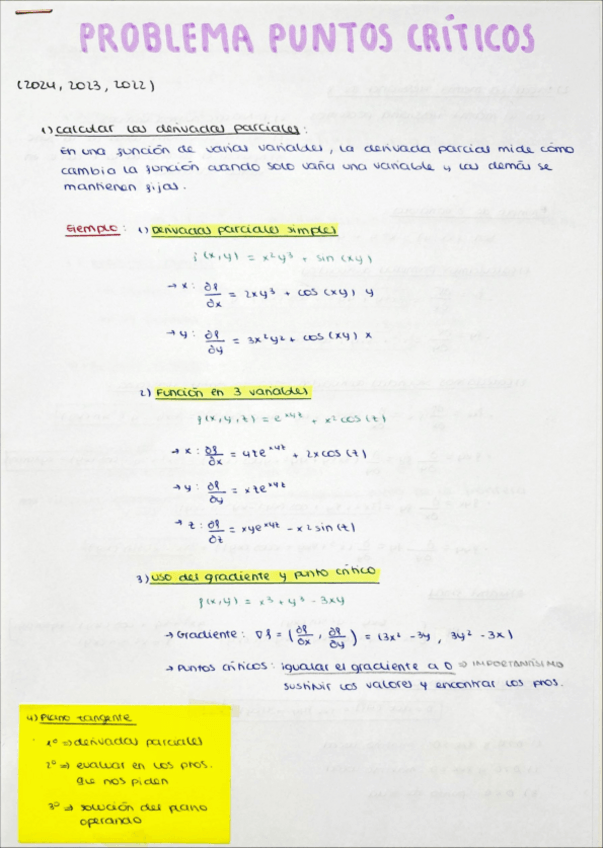 PROBLEMA PUNTOS CRÍTICOS
(2024, 2023, 2022)
1) calcular las derivadas parciales:
En una función de varias variables, la derivada parcial mide cómo
cambia la función cuando solo varía una variable y las demás se
mantienen fijas.
Ejemplo: 1) Derivadas parciales simples
f(x,y) = x²y³ + sin(xy)
→ x: ∂f/∂x = 2xy³ + cos(xy) y
→ y: ∂f/∂y = 3x²y² + cos(xy) x
2) Función en 3 variables
f(x,y,z) = e^xyz + x² cos(z)
→ x: ∂f/∂x = yze^xyz + 2x cos(z)
→ y: ∂f/∂y = xze^xyz
→ z: ∂f/∂z = xye^xyz - x² sin(z)
3) Uso del gradiente y punto crítico
f(x,y) = x³ + y³ - 3xy
→ Gradiente: ∇f = (∂f/∂x, ∂f/∂y) = (3x² - 3y, 3y² - 3x)
→ Puntos críticos: igualar el gradiente a 0 ⇒ IMPORTANTÍSIMO
sustituir los valores y encontrar los ptos.
4) Plano tangente
1º ⇒ derivadas parciales
2º ⇒ evaluar en los ptos.
que nos piden
3º ⇒ solución del plano
operando